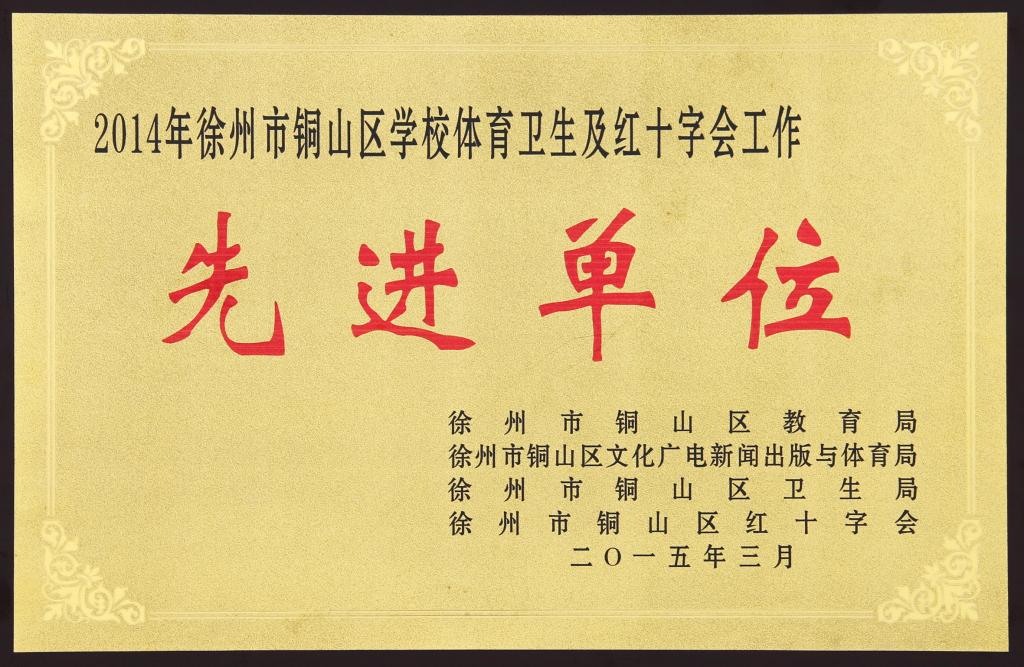 2014年徐州市铜山区学校体育卫生及红十字会工作
先进单位
徐州市铜山区教育局
徐州市铜山区文化广电新闻出版与体育局
徐州市铜山区卫生局
徐州市铜山区红十字会
二〇一五年三月